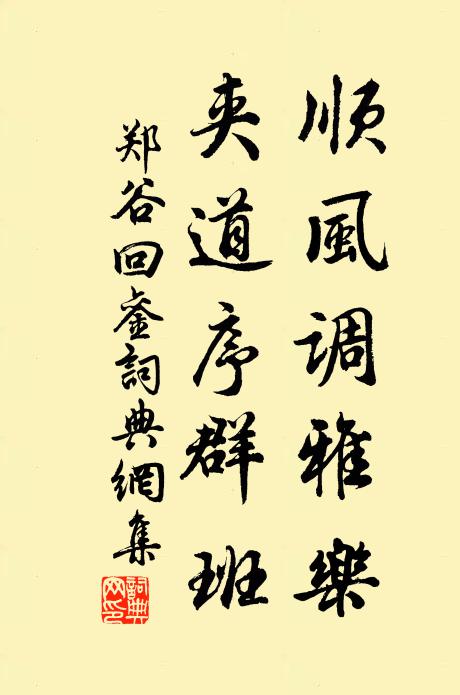 順風調雅樂
夾道序群班
郑谷回鑾詞典網集
詞典網印